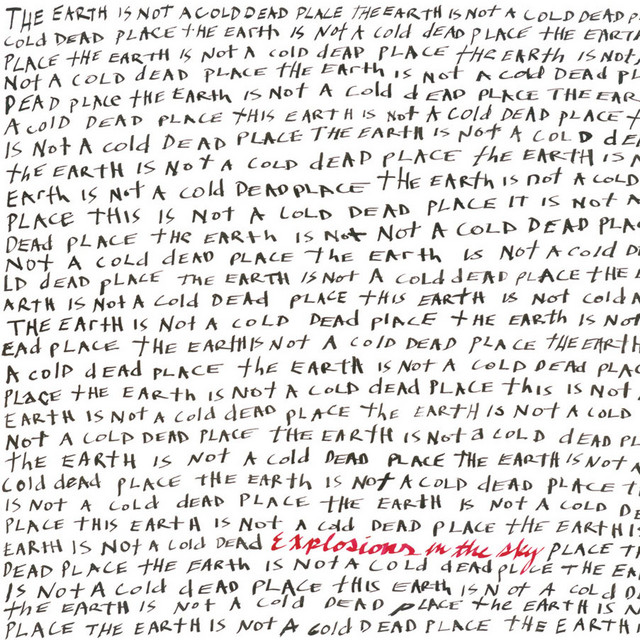 THE EARTH IS NOT A COLD DEAD PLACE THE EARTH IS NOT A COLD DEAD P
COLD DEAD PLACE THE EARTH IS NOT A cold dEAD PLACE THE EARTH
PLACE THE EARTH IS NOT A COLD DEAD PLACE THE EARTH IS NOT
NOT A COLD dEAD PLACE THE EARTH IS NOT A COLD DEAD PL
DEAD PLACE THE EARTH IS NOT A COLD dEAD PLACE THE EAR
A COLD DEAD PLACE THIS EARTH IS NOT A COLD DEAD PLACE T
IS NOT A COLD DEAD PLACE THE EARTH IS NOT A COLD dE
the EARTH IS NOT A COLD dEAD PLACE the EARTH IS N
EARTH IS NOT A COLD DEAD PLACE THE EARTH IS NOT A COLD
PLACE THIS IS NOT A COLD DEAD PLACE IT IS NOT A
DEAD PLACE THE EARTH IS NOT NOT A COLD DEAD PLA
NOT A COLD dEAD PLACE THE EARTH IS NOT A COLD D
LD DEAD PLACE THE EARTH IS NOT A COLD dEAD PLACE THE
ARTH IS NOT A COLD DEAD PLACE THIS EARTH IS NOT COLD A
THE EARTH IS NOT A COLD DEAD PLACE THE EARTH IS NOT
EAD PLACE THE EARTH IS NOT A COLD DEAD PLACE THE EARTH
A COLD dEAD PLACE the EARTH IS NOT A COLD DEAD PLAC
PLACE THE EARTH IS NOT A COLD dEAD PLACE this IS NOT
EARTH IS NOT A cold dEAD PLACE the EARTH IS NOT A COLD
NOT A COLD DEAD PLACE THE EARTH IS NOT a COLD dEAD PL
the EARTH IS NOT A COLD DEAD PLACE THE EARTH IS NOT A
COLD dead PLACE THE EARTH IS NOT A COLD dEAD PLACE T
IS NOT A COLD dEAD PLACE THE EARTH IS NOT A COLD DE
PLACE THIS EARTH IS NOT A COLD DEAD PLACE THE EARTH IS
EARTH IS NOT A COLD DEAD Explosions in the sky PLACE T
DEAD PLACE THE EARTH IS NOT A COLD dEAD PLACE THE EA
IS NOT A COLD dEAD PLACE THIS EARTH IS NOT A COLD D
the EARTH IS NOT A COLD DEAD PLACE THE EARTH IS N
PLACE THE EARTH IS NOT A COLD DEAD PLACE THE EARTH